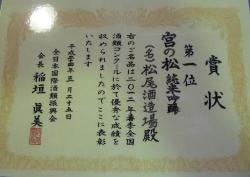 賞状
第一位
宮の松 純米吟醸
(名)松尾酒造場殿
右のご名品は二〇一二年春季全国
酒類コンクールに於て優秀な成績を
収められましたのでここに表彰
いたします
平成二十四年五月二十五日
全日本国際酒類振興会
会長 稲垣眞美